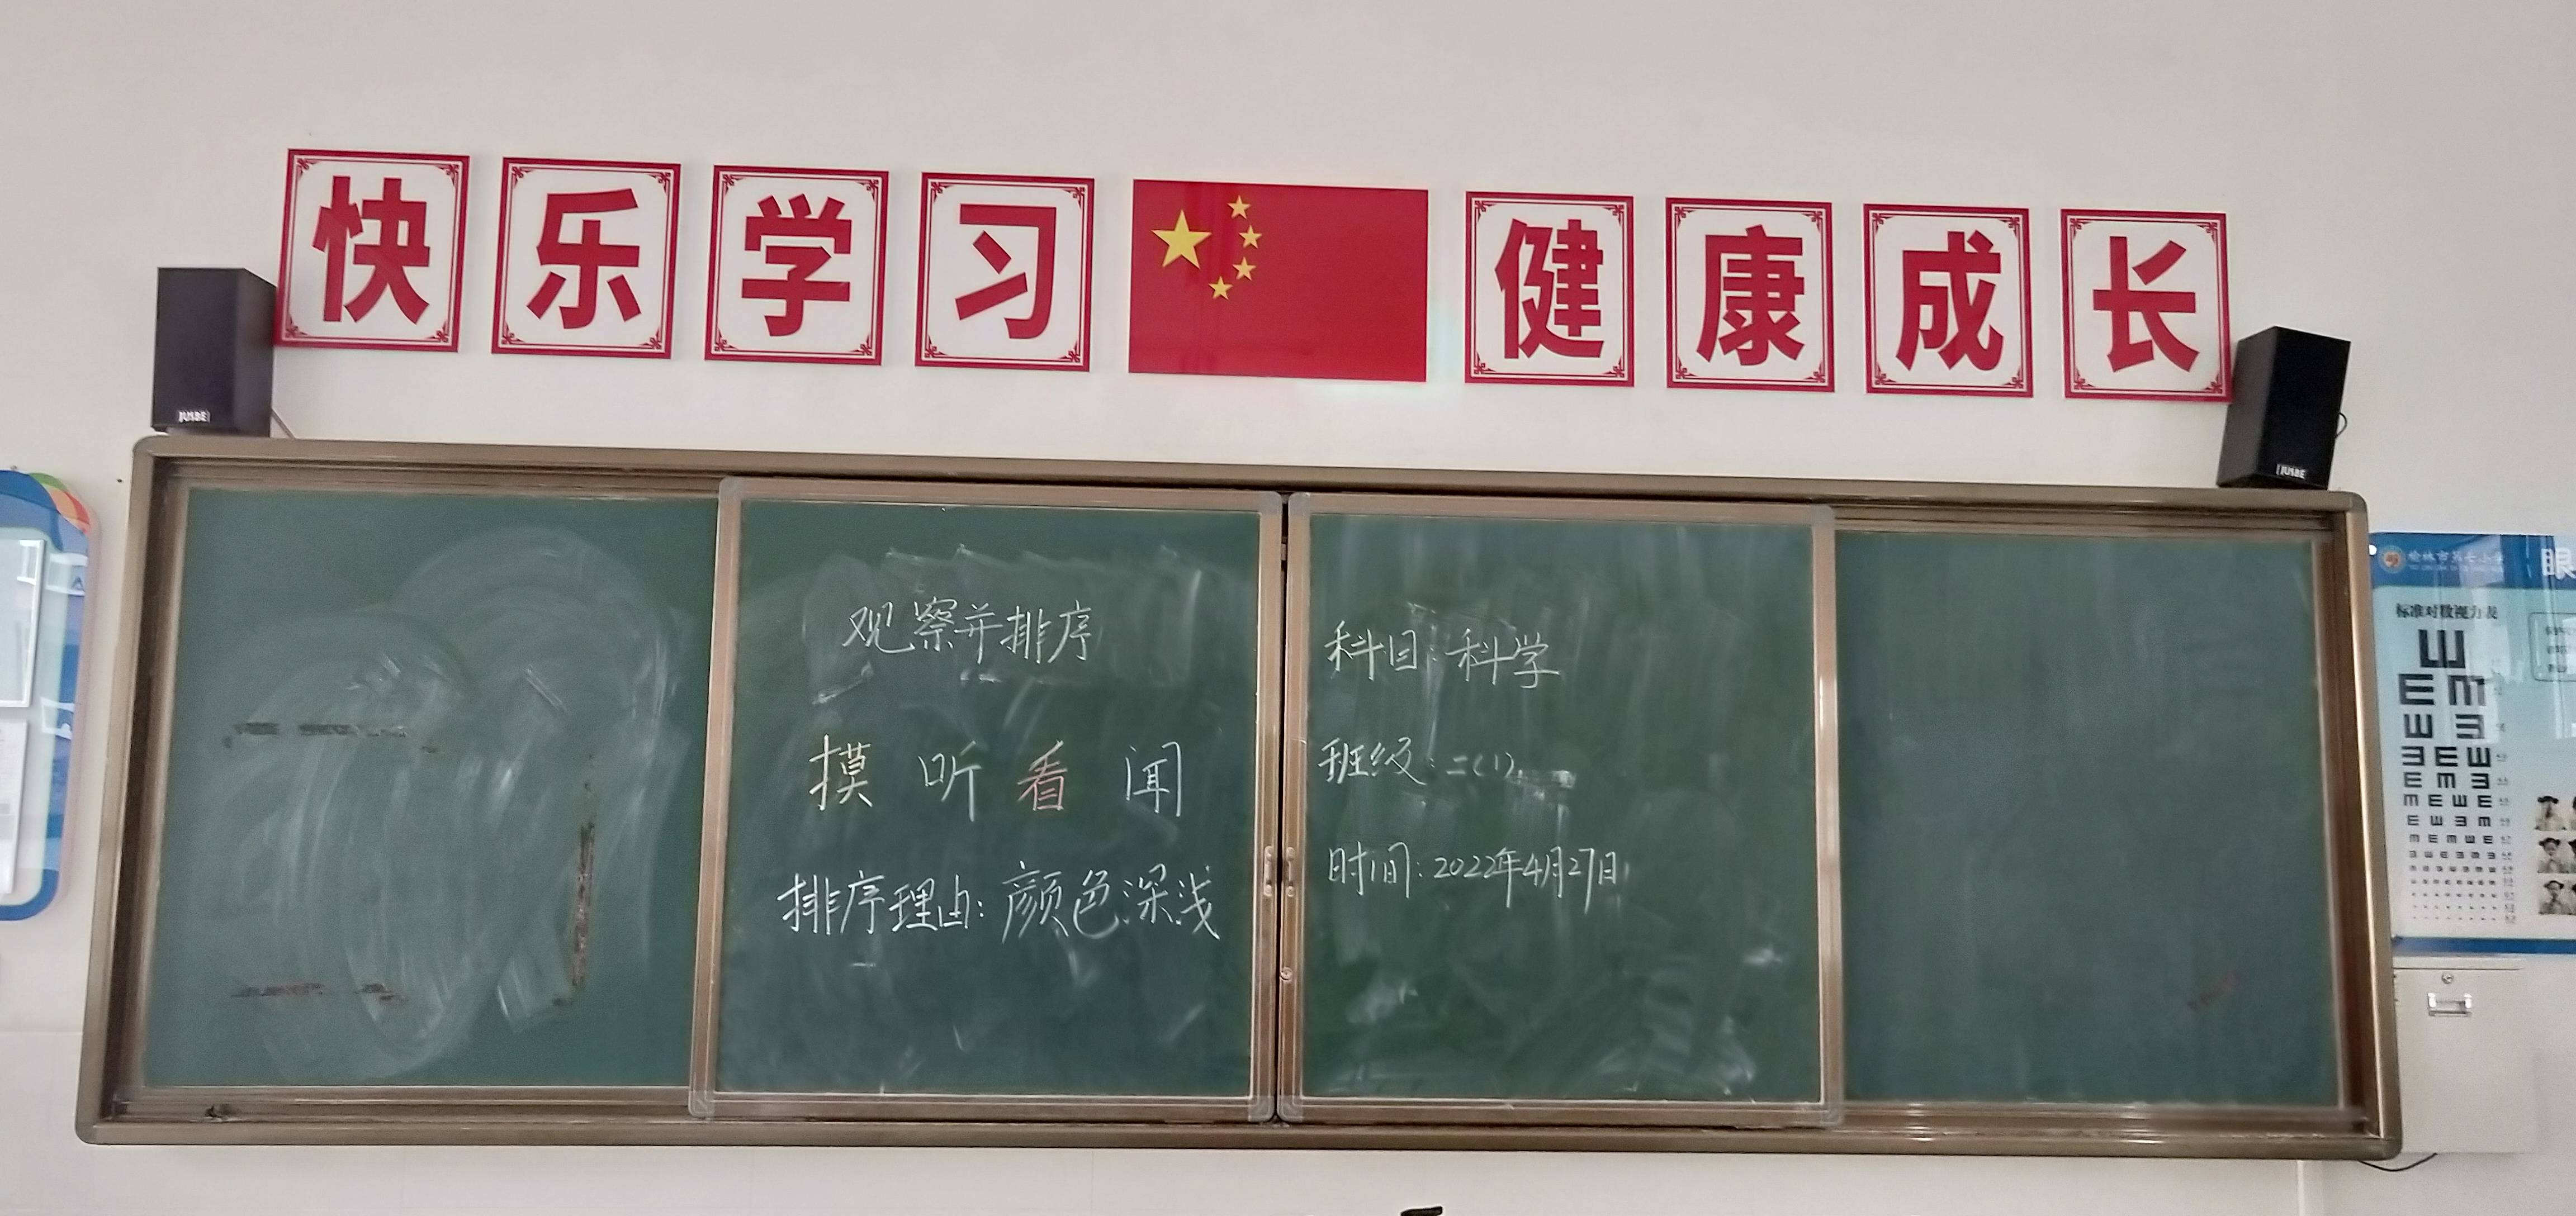 快乐学习 健康成长
JUSBE
JUSBE
观察并排序
摸 听 看 闻
排序理由:颜色深浅
科目:科学
班级:二(1)
时间:2022年4月27日
榆林市第七小学
眼
标准对数视力表